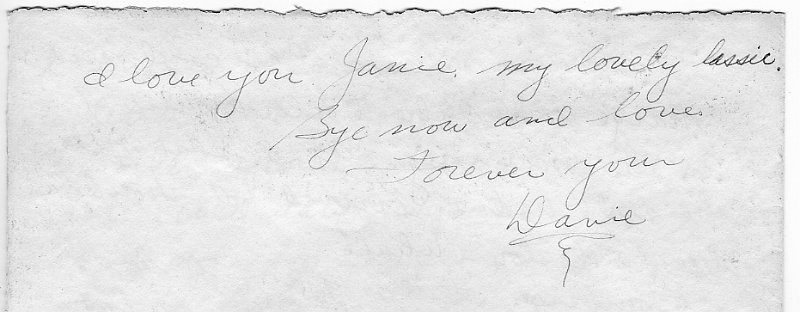 I love you Janie, my lovely lassie.
Bye now and love
Forever your
Davie